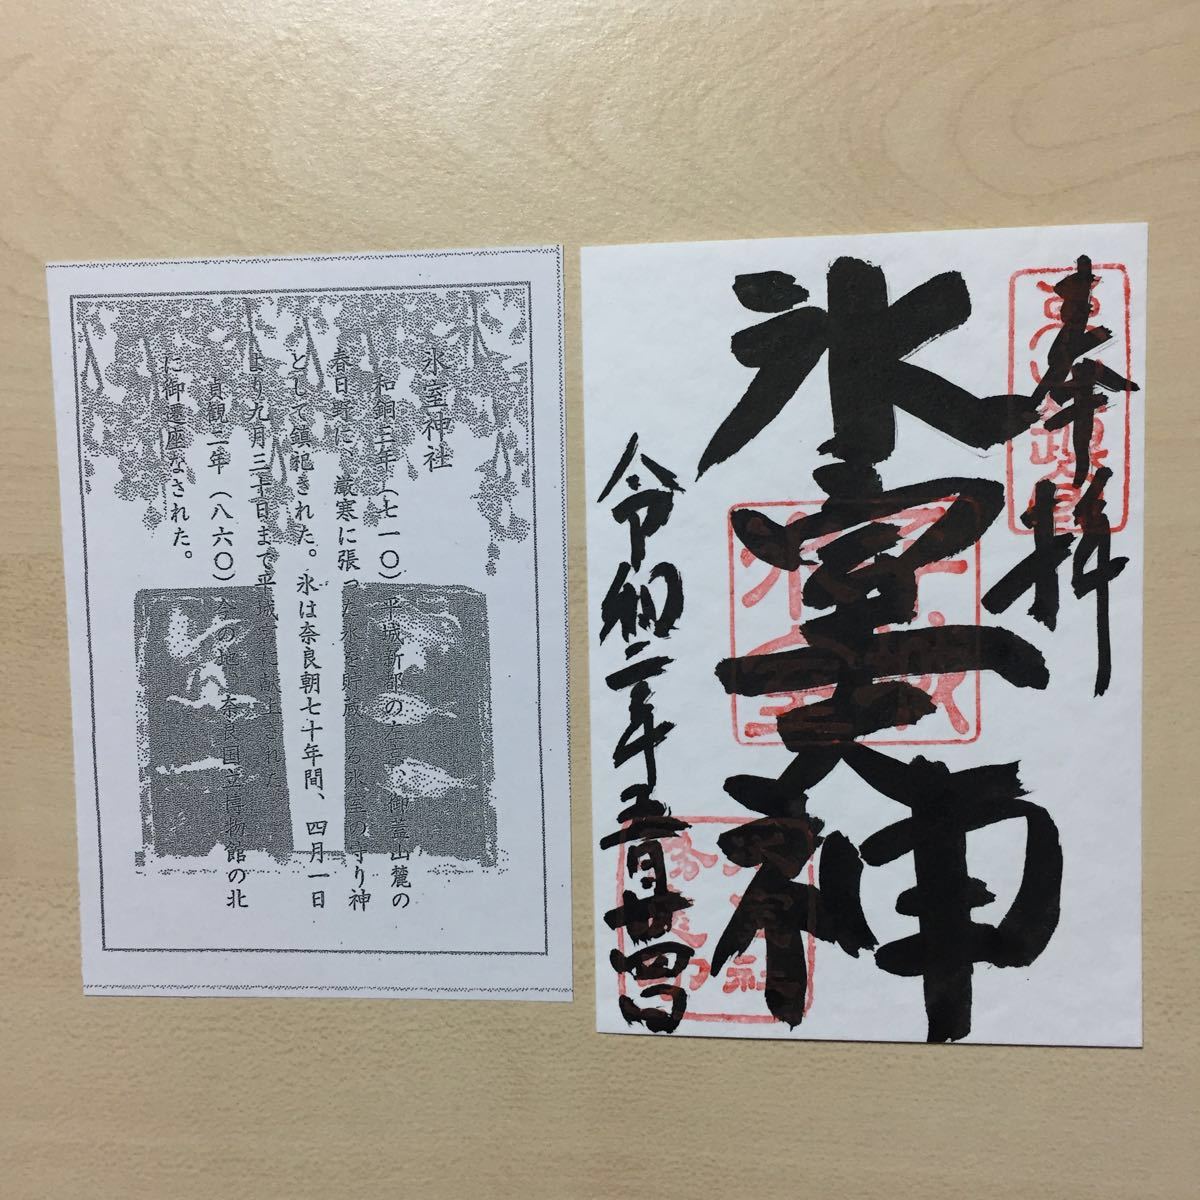 奉拝
氷室大神
令和二年五月廿四日
氷室神社
和銅三年(七一〇)平城新都の左京、御蓋山麓の
春日野に、厳寒に張った氷を貯蔵する氷室の守り神
として鎮祀された。氷は奈良朝七十年間、四月一日
より九月三十日まで平城宮に献上された。
貞観二年(八六〇)今の地、奈良国立博物館の北
に御遷座なされた。